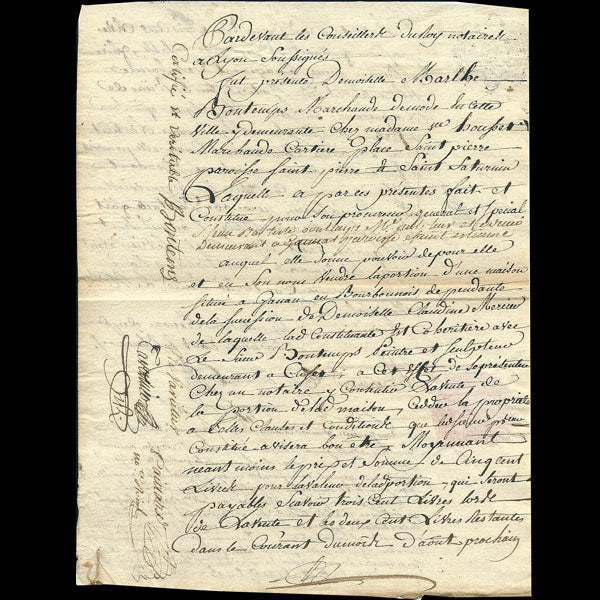 Pardevant les Conseillers du Roy notaires
a Lyon Soussignés
fut presente Demoiselle Marthe
Bontemps Marchande demode de cette
Ville y demeurante chez madame Ve bousset
Marchande Cartiere place Saint pierre
paroisse saint pierre & Saint Saturnin
Laquelle a par ces presentes fait et
Constitué pour Son procureur general et special
Demeurant a paroisse
auquel elle donne pouvoir de pour elle
et en Son nom Vendre la portion d'une maison
située a Ganan en Bourbonnois dependante
de la succession de Demoiselle Claudine Mercier
de laquelle lad Constituante Est Coheritiere avec
Le Sieur Bontemps peintre et sculpteur
demeurant a Cusset a Cet effet de se présenter
Chez un notaire y Consentir La vente de
la portion de lad maison, ceder la propriété
a telles Clauses et Conditions que led sieur preur
Constitué avisera bon etre Moyennant
neant moins le prix et Somme de Cinq Cent
Livres pour la valeur de lad portion, qui seront
payables Scavoir trois Cent Livres lors
de La vente et les deux Cent Livres Restantes
dans le Courant du mois d'aout prochain
Certifié et veritable Bontems